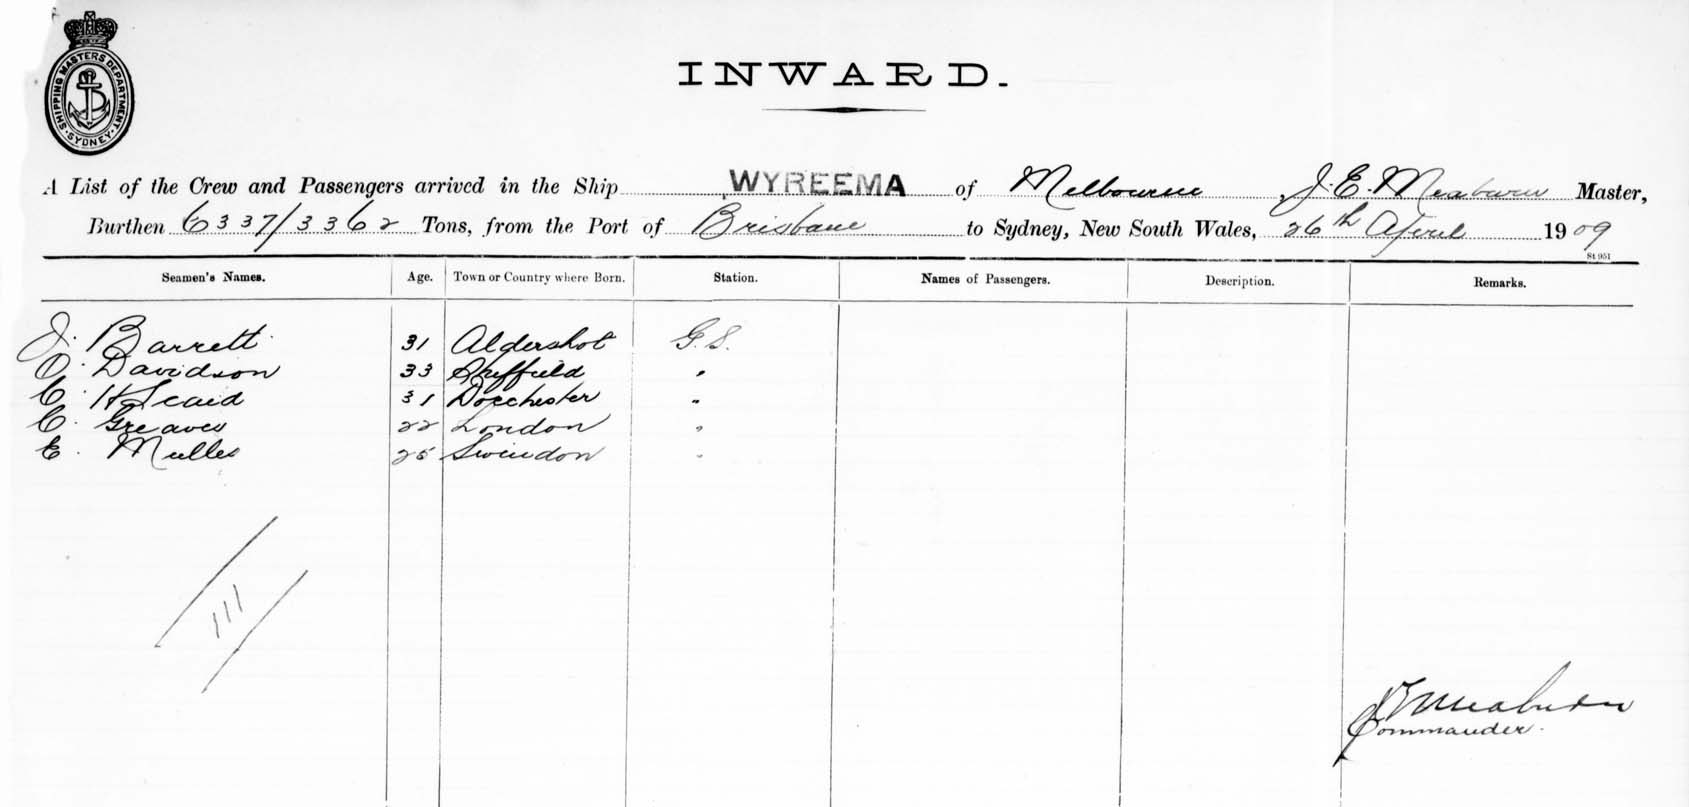 SHIPPING MASTERS DEPARTMENT
SYDNEY
INWARD.
A List of the Crew and Passengers arrived in the Ship WYREEMA of Melbourne, J. E. Meaburn Master,
Burthen 6337/3362 Tons, from the Port of Brisbane to Sydney, New South Wales, 26th April 1909
St 951
Seamen's Names. Age. Town or Country where Born. Station. Names of Passengers. Description. Remarks.
J. Barrett 31 Aldershot G.S.
O. Davidson 33 Sheffield "
C. 31 Dorchester "
C. Greaves 22 London "
E. Mulles 25 Swindon "
111
J E Meaburn
Commander.